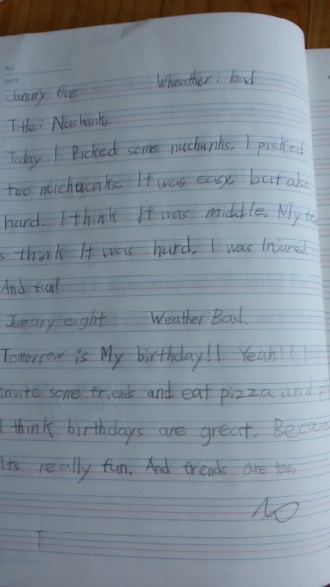 NO.
DATE
Junury five Wheather: bad
Title: Nuchanks.
Today I Picked some nuchanks. I picked
two nuchaunks. It was easy but also
hard. I think It was middle. My te
s think It was hard. I was Injured.
And fun!
Junury eight Weather Bad.
Tomorrow is My birthday!! Yeah!!
invite some friends and eat pizza and
I think birthdays are great. Becau
Its really fun. And friends are too.